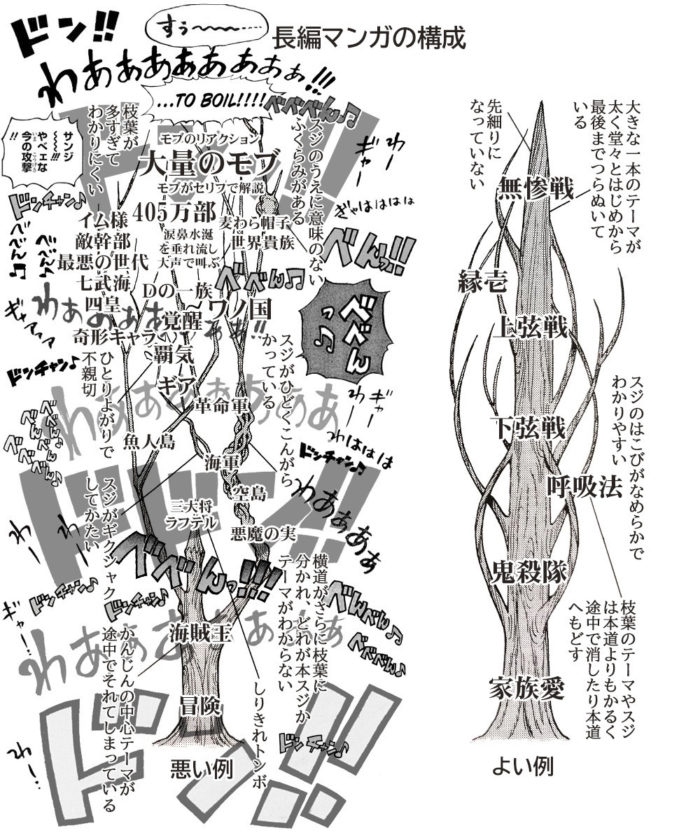 長編マンガの構成
ドン!!
すぅ~~~~……
わあぁぁぁぁぁぁぁぁ!!!
…TO BOIL!!!!
べべべん♪
サンジ
〜〜〜!!!
やべェな
今の攻撃
枝葉が
多すぎて
わかりにくい
モブのリアクション
大量のモブ
モブがセリフで解説
スジのうえに意味のない
ふくらみがある
わー
ぎゃはははは
ドンチャン♪
べべん♪
べんっ!!
405万部
涙鼻水涎
を垂れ流し
大声で叫ぶ
麦わら帽子
世界貴族
イム様
敵幹部
最悪の世代
七武海
四皇
奇形キャラ
Dの一族
覚醒
ワノ国
覇気
ギア
べべん♪
べべんっ♪
ギャアァァ
わあぁぁぁぁぁぁ
ドンチャン♪
ひとりよがりで
不親切
スジがひどくこんがら
かっている
ギャー
わー
わははは
ドンチャン♪
革命軍
魚人島
海軍
空島
三大将
ラフテル
悪魔の実
わあぁぁぁぁ
ドドン!!
スジがギクシャク
してかたい
わー
べべんっ!!!
横道がさらに枝葉に
分かれ、どれが本スジか
テーマがわからない
べんべん♪
べべべん♪
ギャー
ドンチャン♪
海賊王
かんじんの中心テーマが
途中でそれてしまっている
しりきれトンボ
冒険
ドンチャン♪
わー
ドン!!
悪い例
大きな一本のテーマが
太く堂々とはじめから
最後までつらぬいて
いる
先細りに
なっていない
無惨戦
縁壱
上弦戦
スジのはこびがなめらかで
わかりやすい
下弦戦
呼吸法
鬼殺隊
枝葉のテーマやスジ
は本道よりもかるく
途中で消したり本道
へもどす
家族愛
よい例